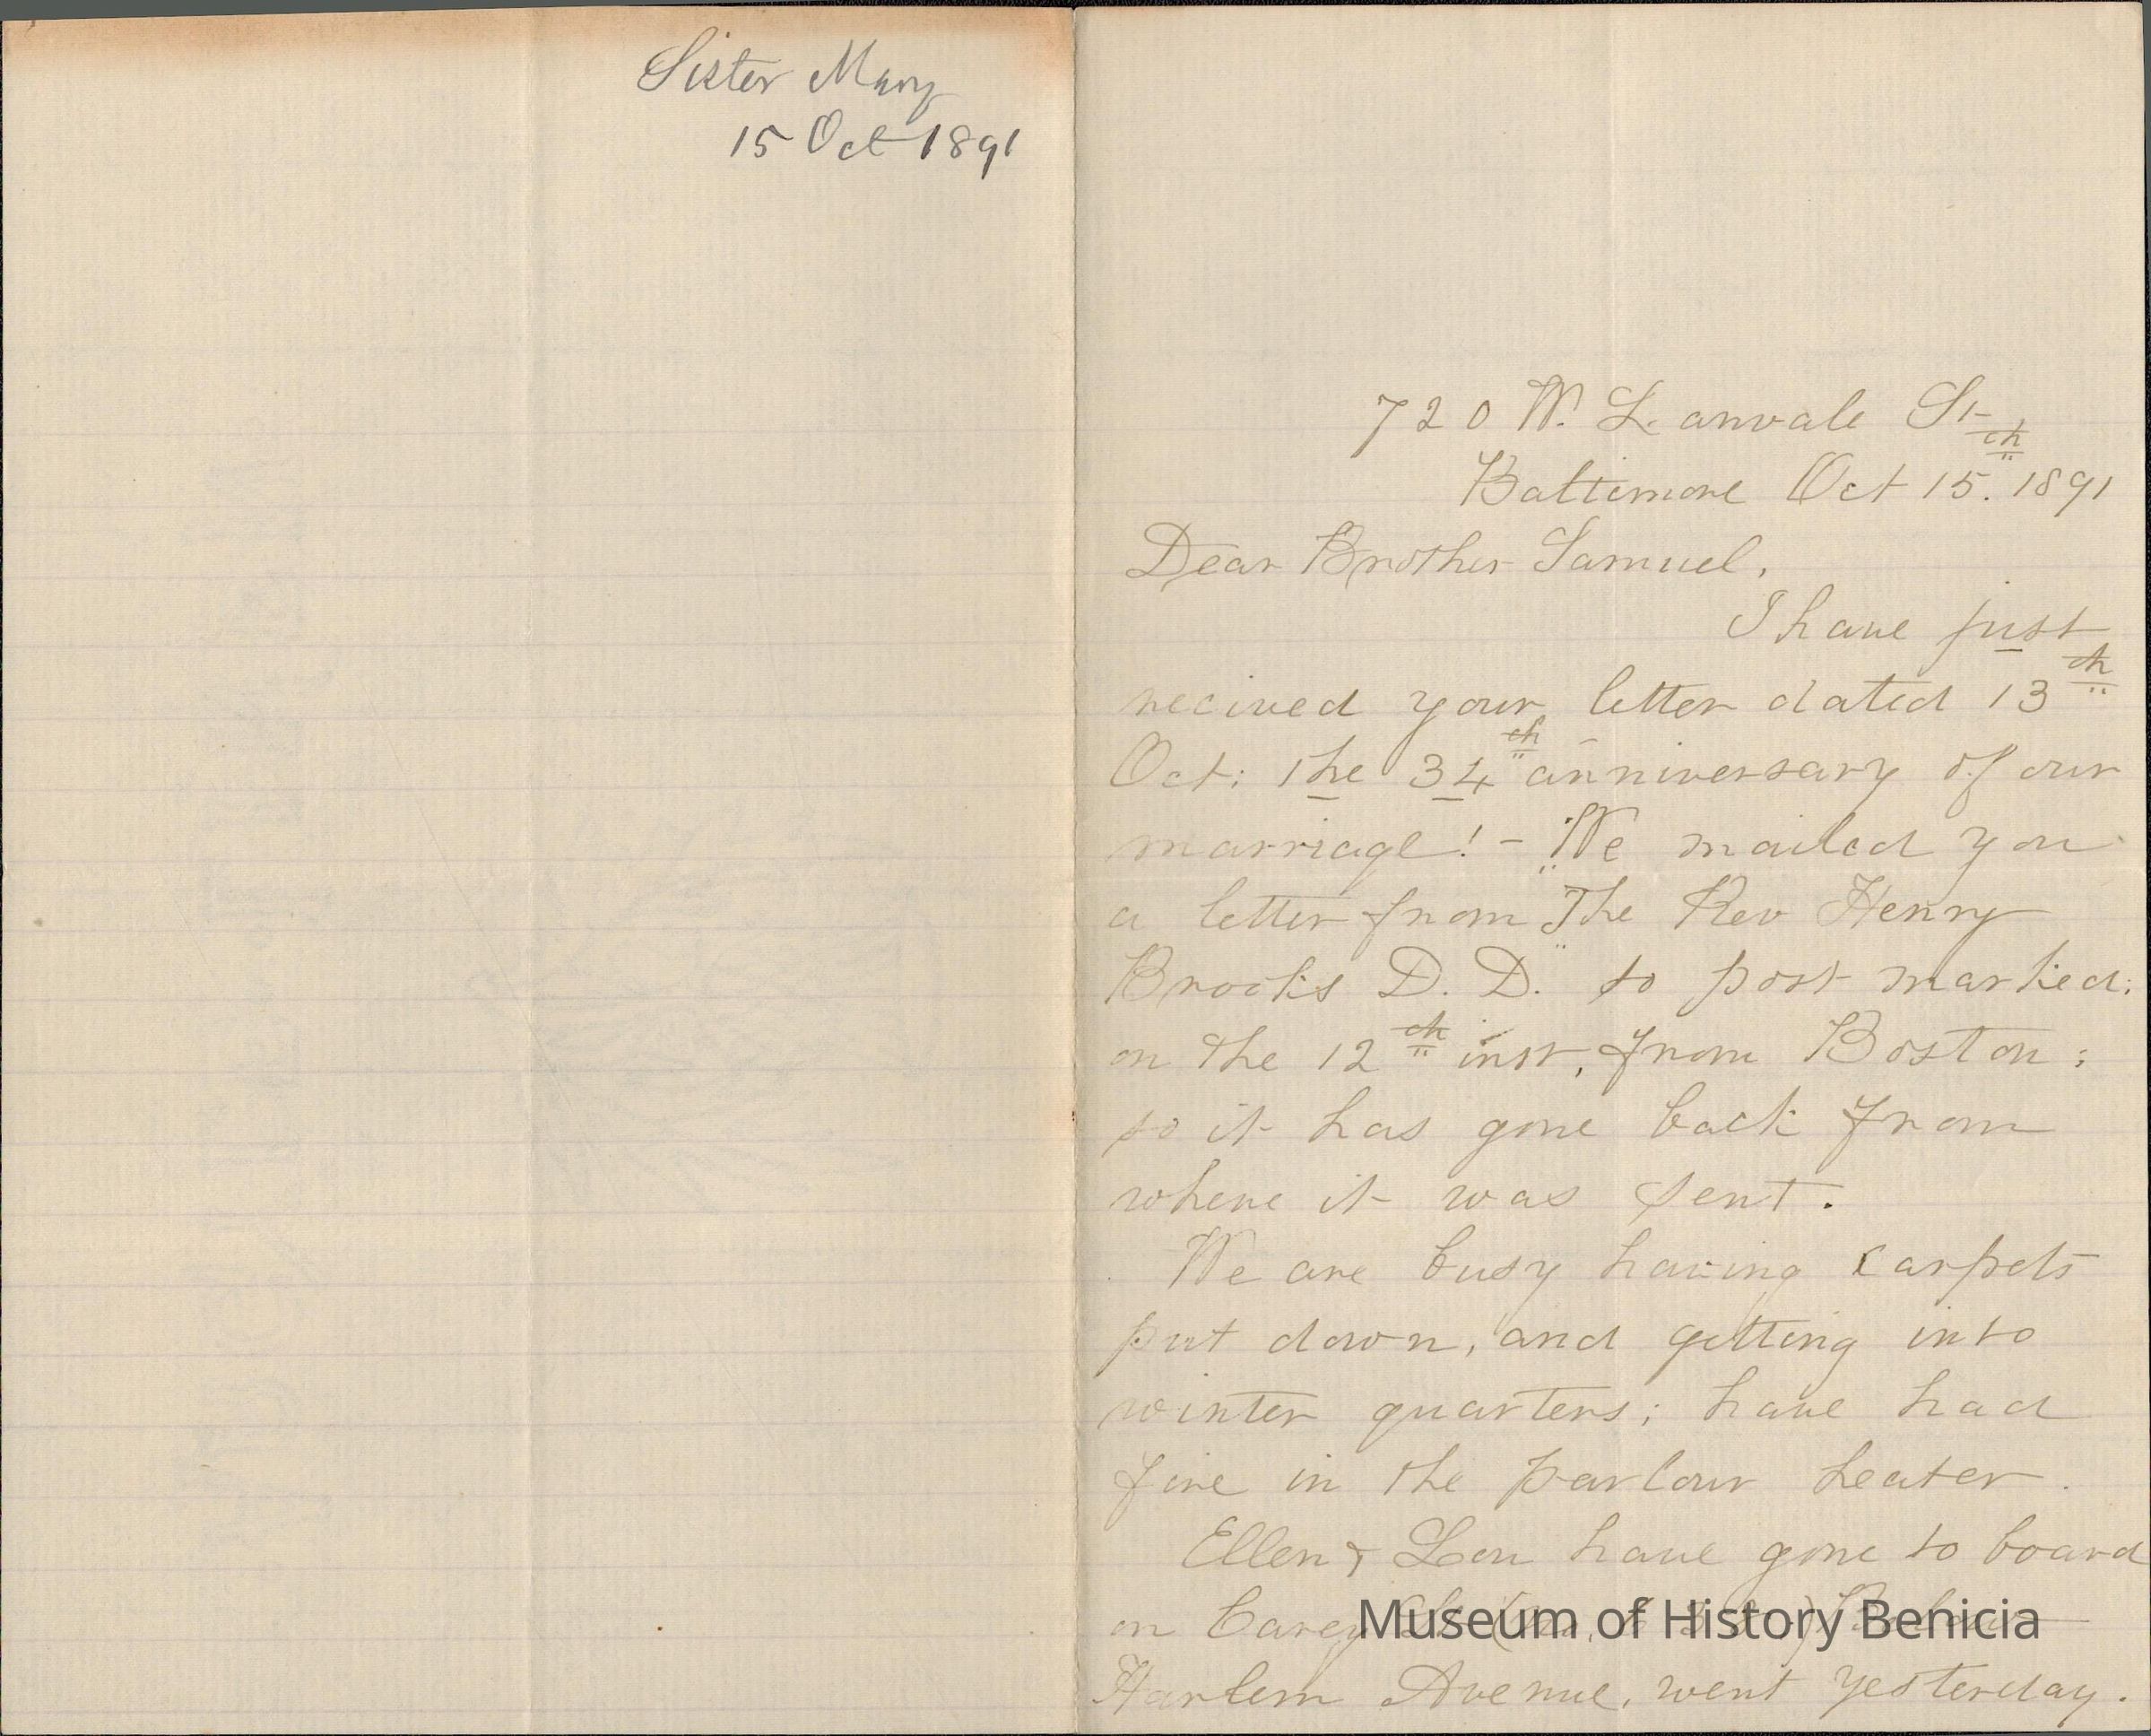 Sister Mary
15 Oct 1891
720 W. Lanvale St
Baltimore Oct 15th. 1891
Dear Brother Samuel,
I have just
recived your letter dated 13th
Oct: the 34th anniversary of our
marriage! - We mailed you
a letter from "The Rev Henry
Brooks D. D." so post marked:
on the 12th inst, from Boston;
so it has gone back from
where it was sent.
We are busy having carpets
put down, and getting into
winter quarters; have had
fire in the parlour heater.
Ellen & Lou have gone to board
on Carey
Museum of History Benicia
Harlem Avenue, went yesterday.